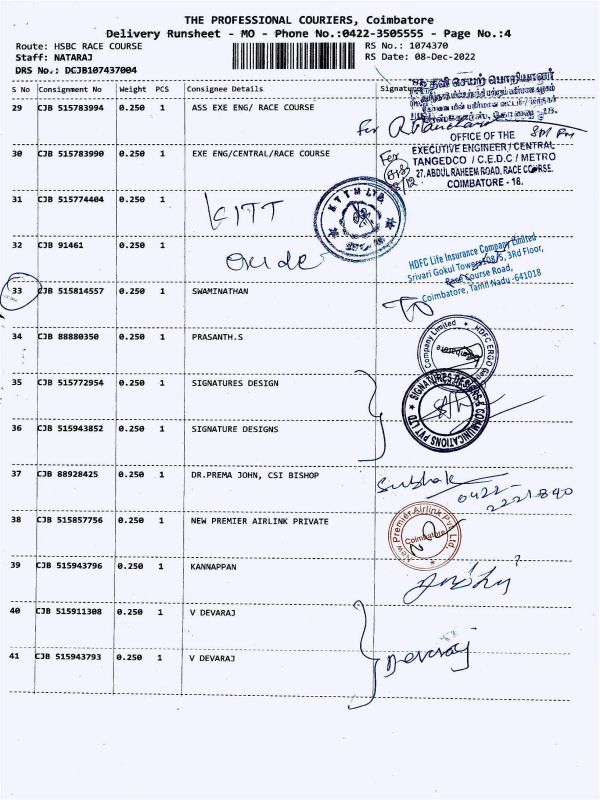 THE PROFESSIONAL COURIERS, Coimbatore
Delivery Runsheet - MO - Phone No.:0422-3505555 - Page No.:4
Route: HSBC RACE COURSE
RS No.: 1074370
Staff: NATARAJ
RS Date: 08-Dec-2022
DRS No.: DCJB107437004
S No Consignment No Weight PCS Consignee Details Signature
29 CJB 515783994 0.250 1 ASS EXE ENG/ RACE COURSE
For
OFFICE OF THE
30 CJB 515783990 0.250 1 EXE ENG/CENTRAL/RACE COURSE
EXECUTIVE ENGINEER / CENTRAL
TANGEDCO / C.E.D.C / METRO
27, ABDUL RAHEEM ROAD, RACE COURSE.
COIMBATORE - 18.
For
8/12
31 CJB 515774404 0.250 1 KITT
32 CJB 91461 0.250 1
HDFC Life Insurance Company Limited
Srivari Gokul Towers 108/5, 3rd Floor,
Race Course Road,
Coimbatore, Tamil Nadu -641018
33 CJB 515814557 0.250 1 SWAMINATHAN
34 CJB 88880350 0.250 1 PRASANTH.S
HDFC ERGO
Company Limited
Coimbatore
35 CJB 515772954 0.250 1 SIGNATURES DESIGN
SIGNATURES DESIGNS & COMMUNICATIONS PVT LTD
36 CJB 515943852 0.250 1 SIGNATURE DESIGNS
37 CJB 88928425 0.250 1 DR.PREMA JOHN, CSI BISHOP
0422-
2221840
38 CJB 515857756 0.250 1 NEW PREMIER AIRLINK PRIVATE
New Premier Airlink Pvt. Ltd.
Coimbatore
39 CJB 515943796 0.250 1 KANNAPPAN
40 CJB 515911308 0.250 1 V DEVARAJ
Devaraj
41 CJB 515943793 0.250 1 V DEVARAJ